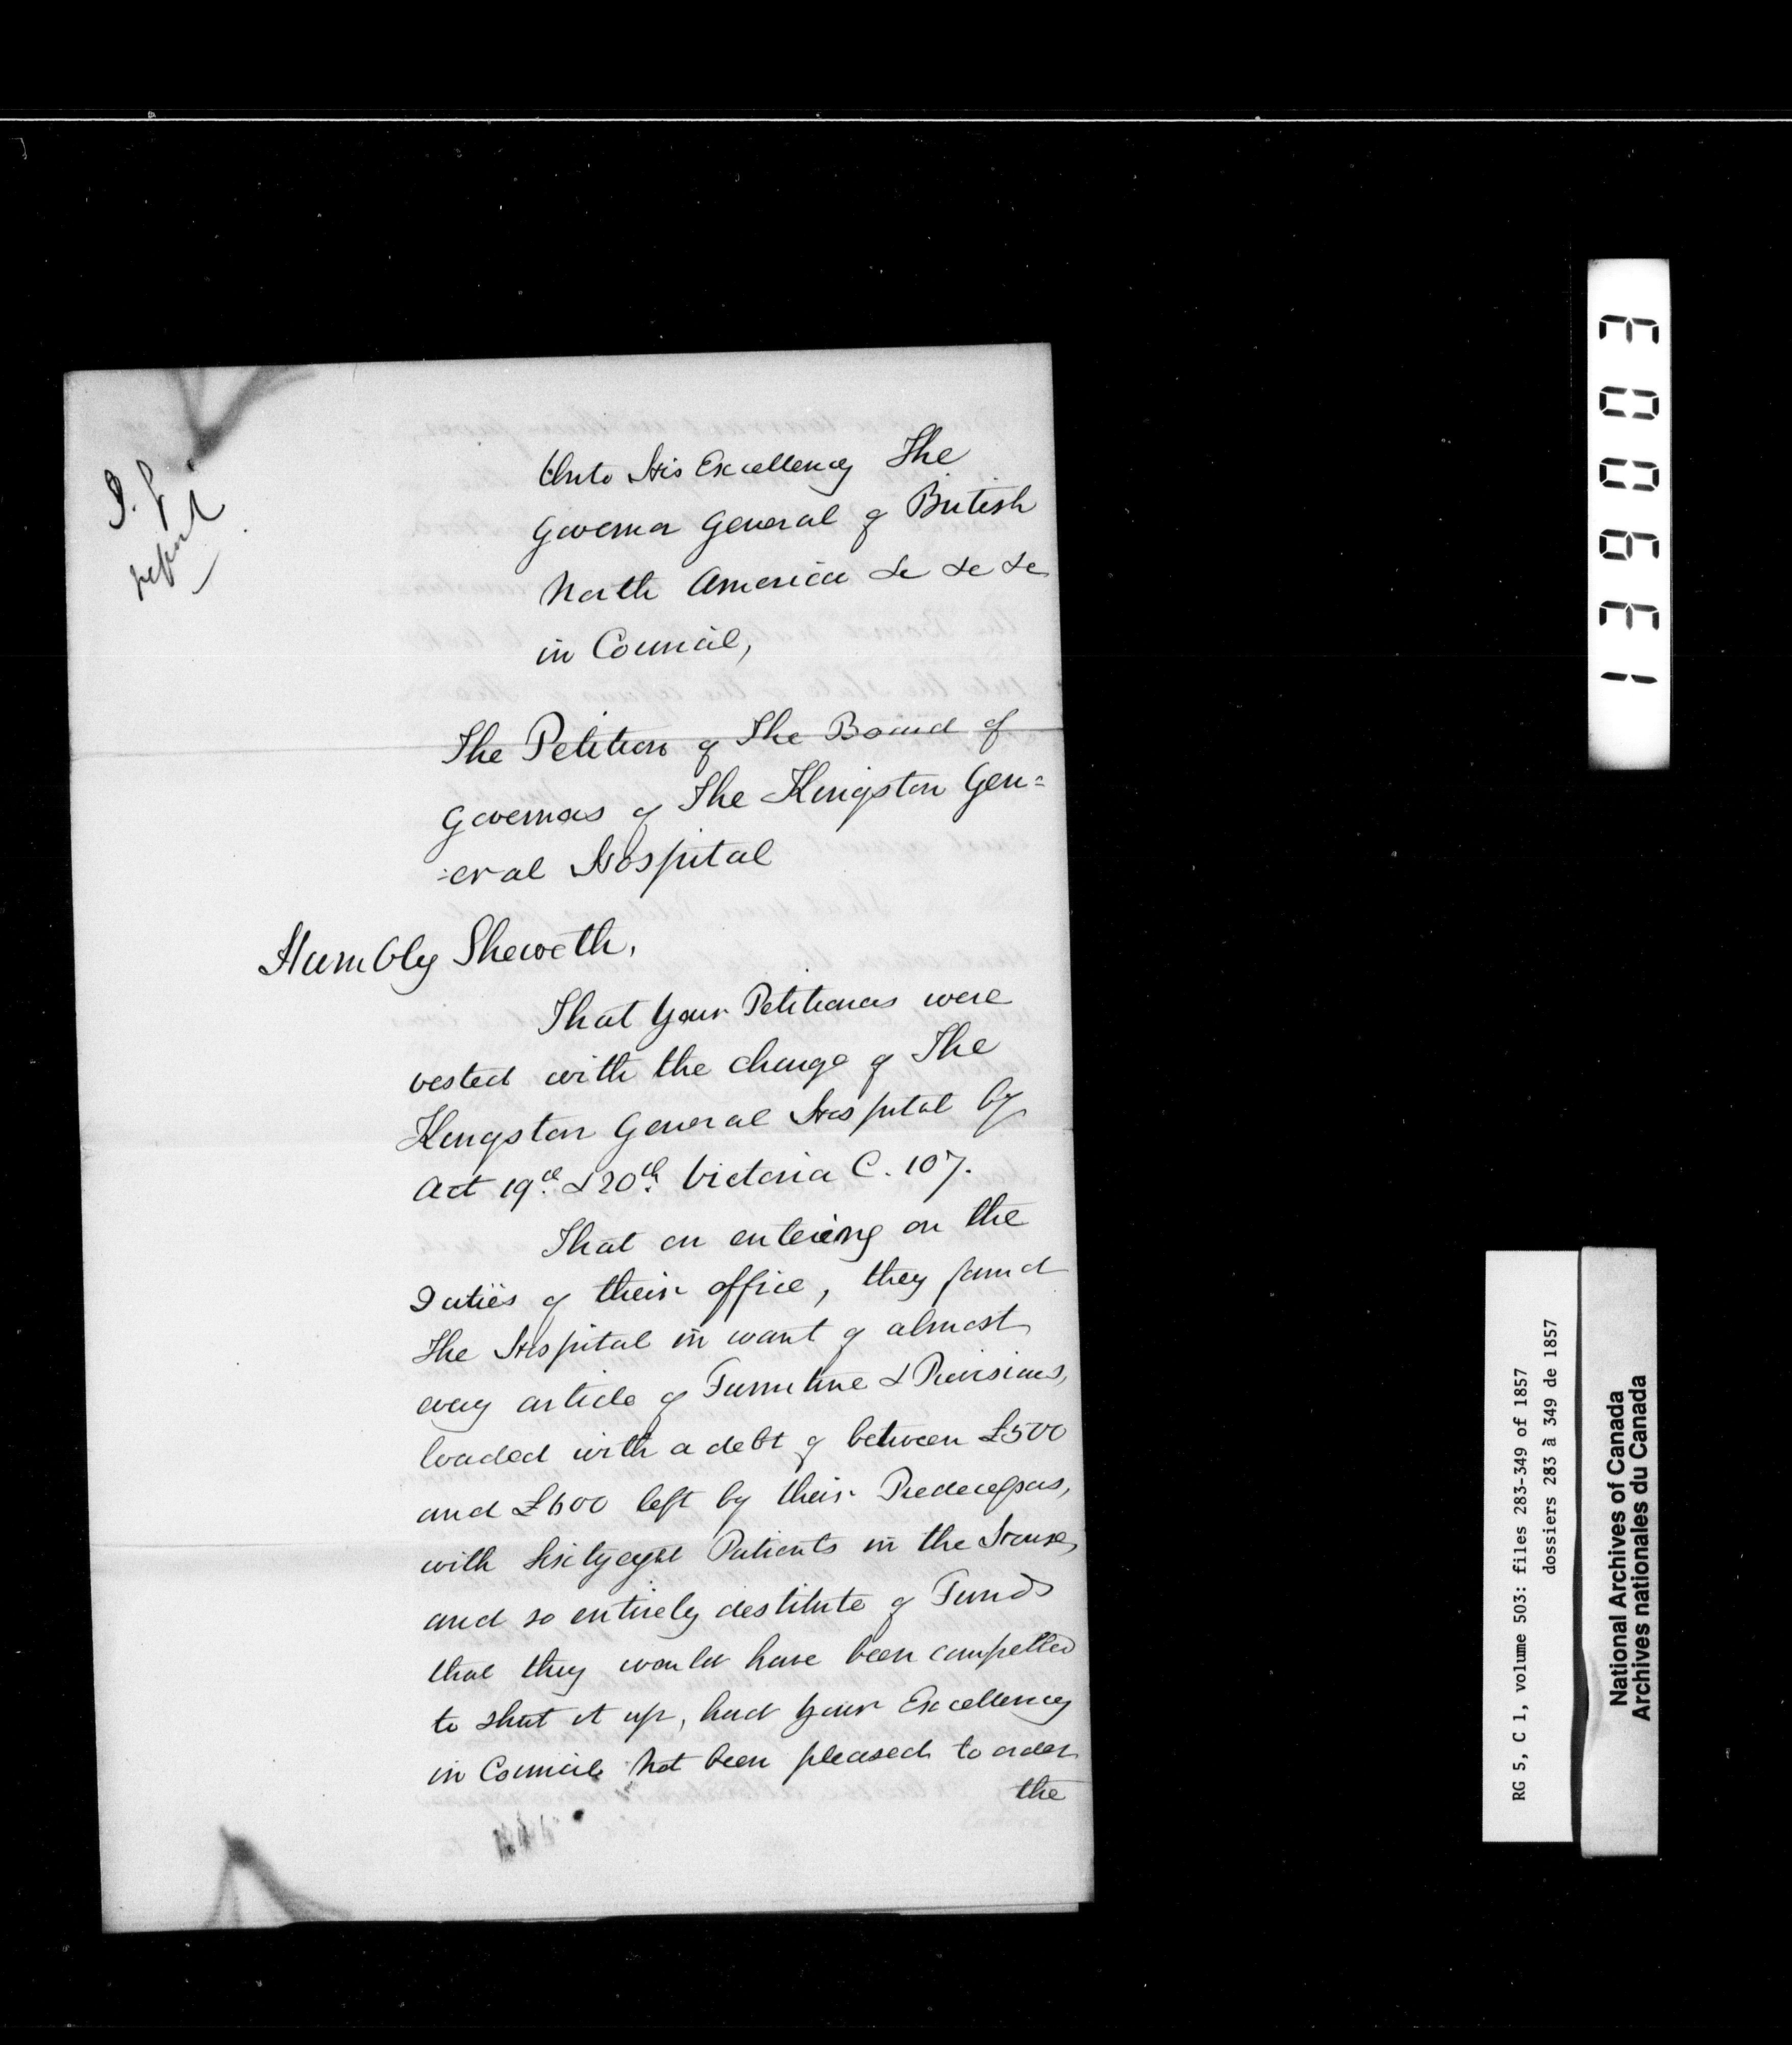 report
Unto His Excellency The
Governor General of British
North America &c &c &c
in Council,
The Petition of The Board of
Governors of The Kingston Gen=
=eral Hospital
Humbly Sheweth,
That Your Petitioners were
vested with the charge of The
Kingston General Hospital by
Act 19th & 20th Victoria C. 107.
That on entering on the
Duties of their office, they found
The Hospital in want of almost
every article of Furniture & Provisions,
loaded with a debt of between £500
and £600 left by their Predecessors,
with Sixtyeight Patients in the House,
and so entirely destitute of Funds
that they would have been compelled
to shut it up, had Your Excellency
in Council not been pleased to order
the
139003
RG 5, C 1, volume 503: files 283-349 of 1857
dossiers 283 à 349 de 1857
National Archives of Canada
Archives nationales du Canada